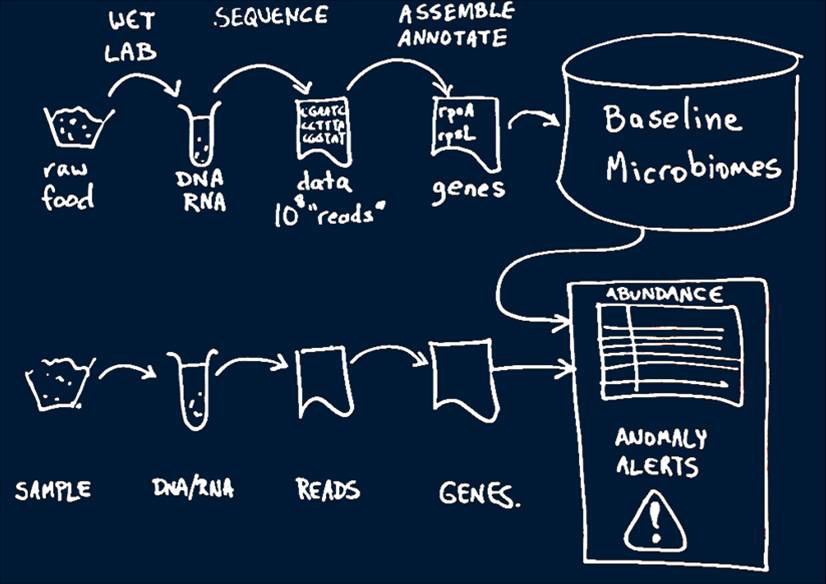 WET
LAB
SEQUENCE
ASSEMBLE
ANNOTATE
CGAATC
CCTTTA
CGGTAT
rpoA
rpsL
Baseline
Microbiomes
raw
food
DNA
RNA
data
10⁸ "reads"
genes
ABUNDANCE
ANOMALY
ALERTS
!
SAMPLE
DNA/RNA
READS
GENES.